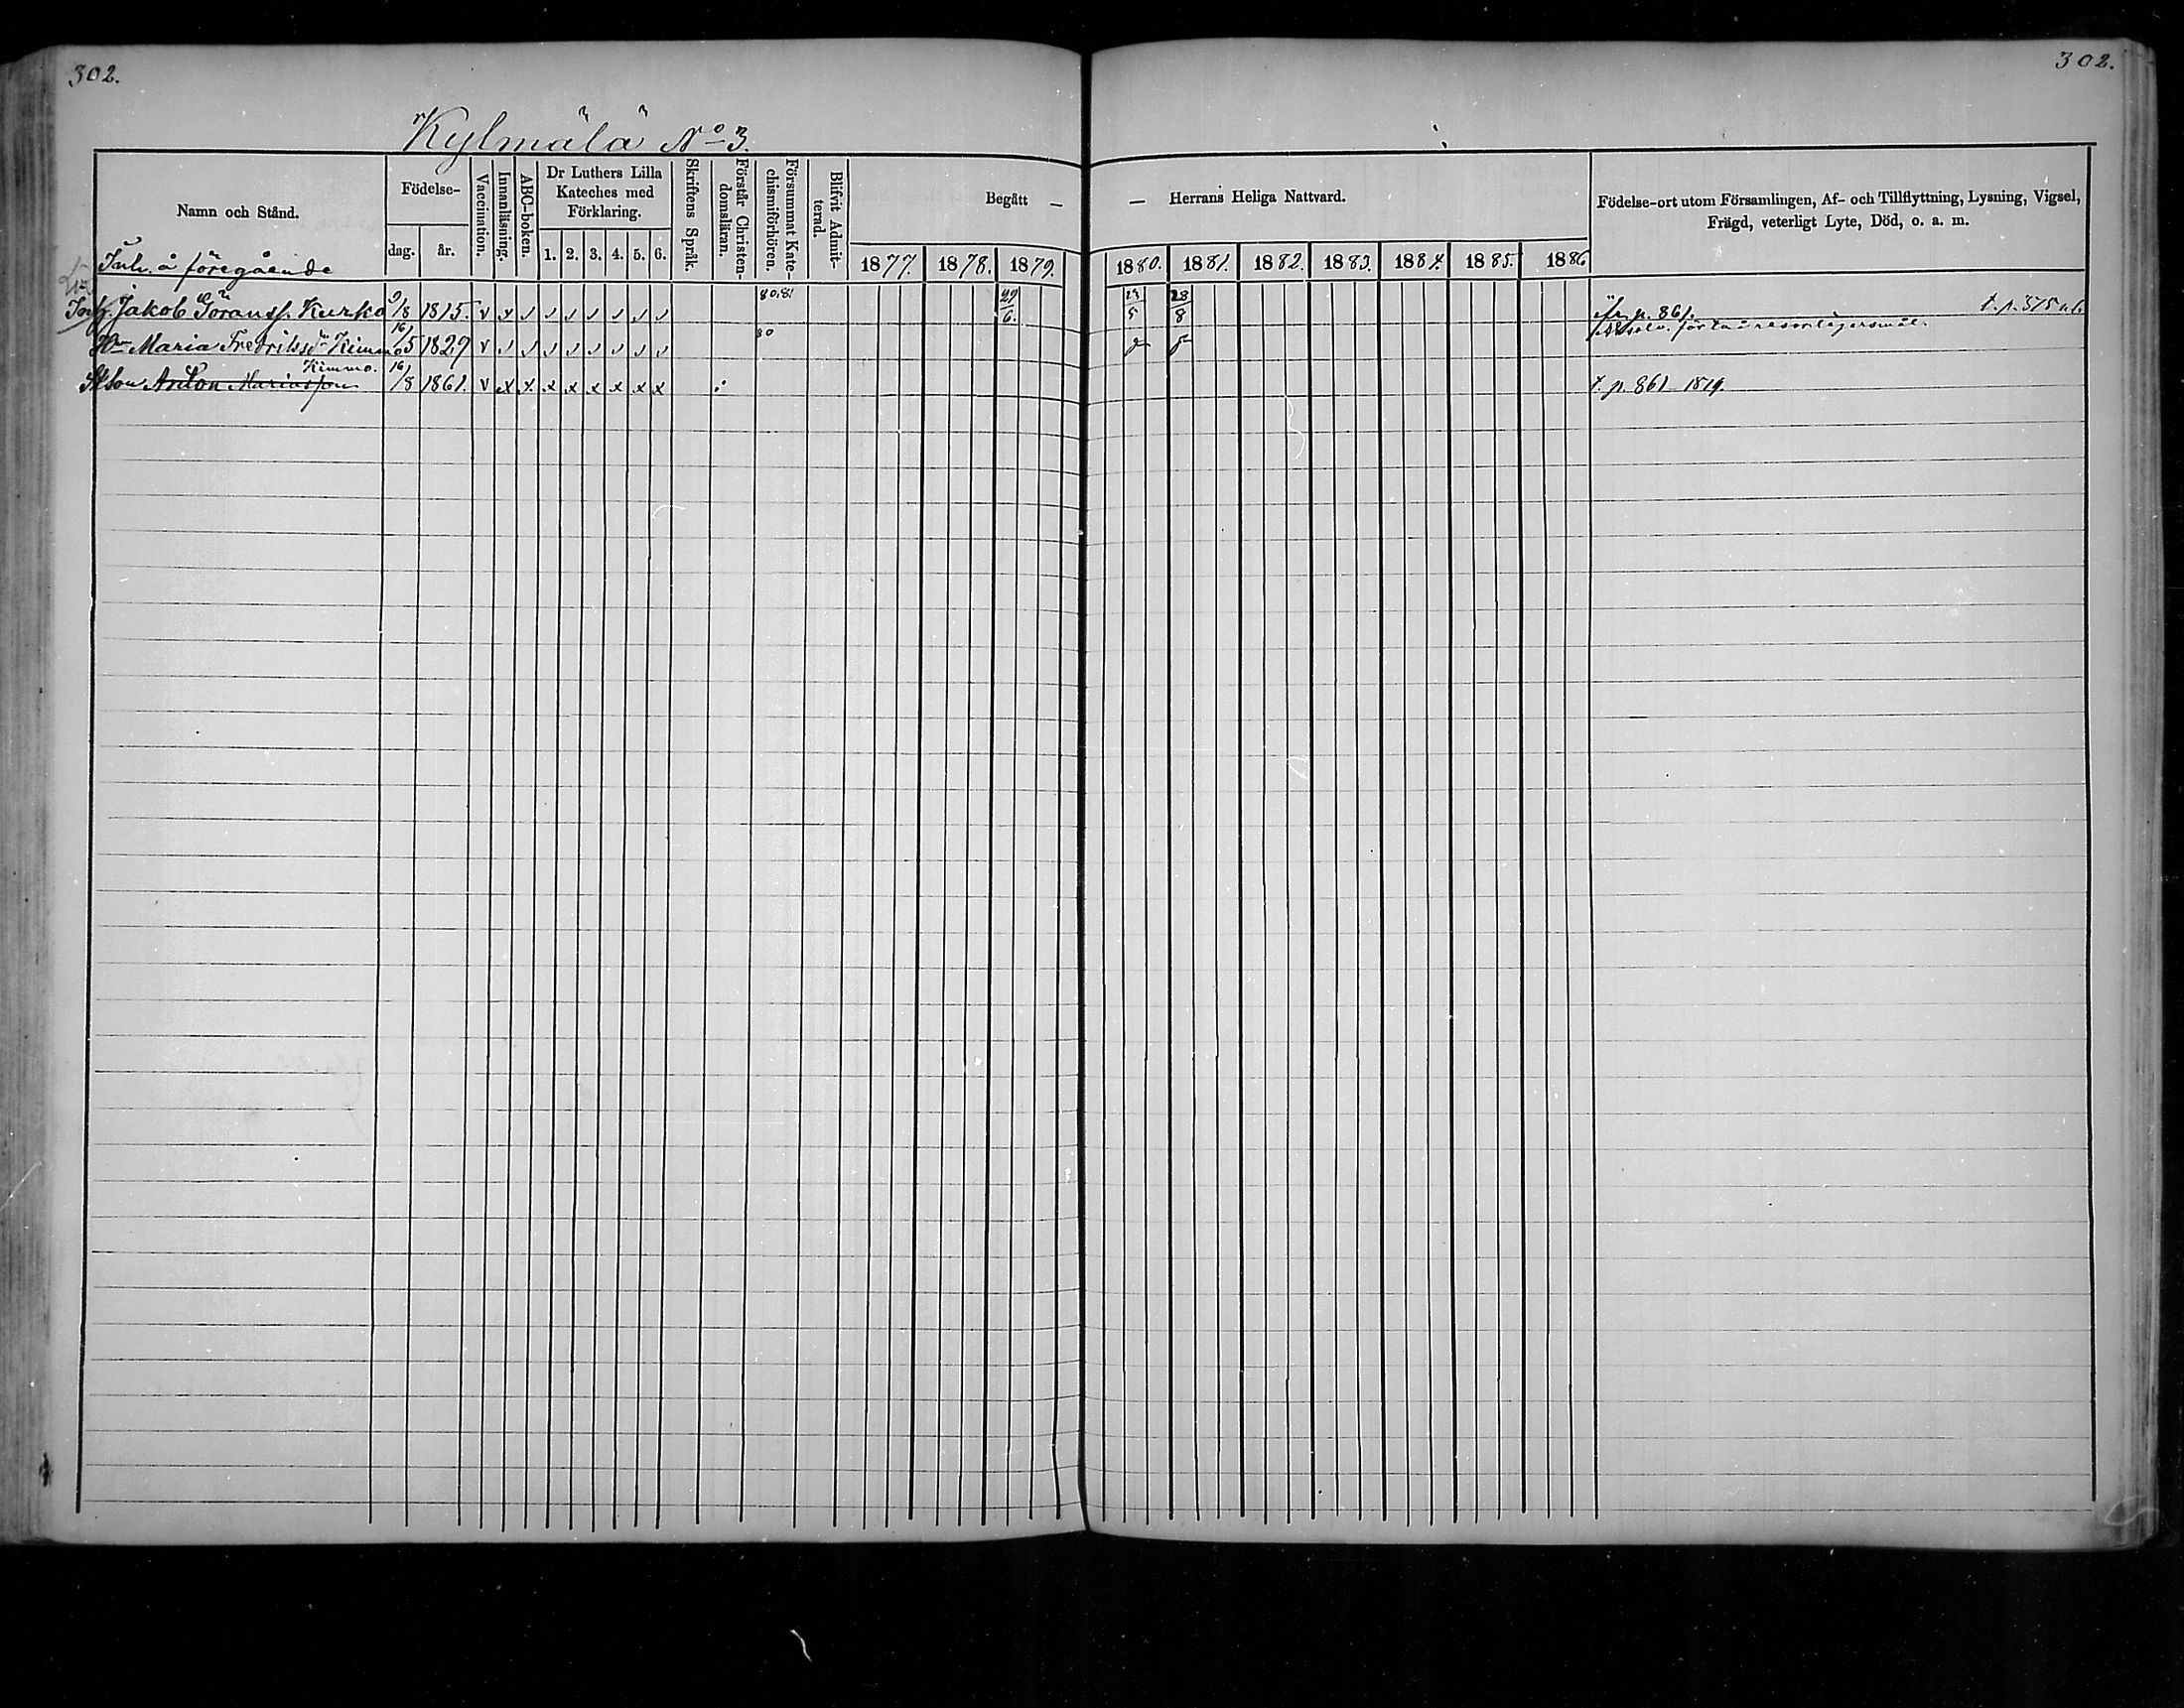 302.
302.
Kylmälä No 3.
Namn och Stånd.
Födelse-
dag.
år.
Vaccination.
Innanläsning.
ABC-boken.
Dr Luthers Lilla
Kateches med
Förklaring.
1. 2. 3. 4. 5. 6.
Skriftens Språk.
Förstår Christen-
domsläran.
Försummat Kate-
chismiförhören.
Blifvit Admit-
terad.
Begått —
— Herrans Heliga Nattvard.
1877. 1878. 1879. 1880. 1881. 1882. 1883. 1884. 1885. 1886
Födelse-ort utom Församlingen, Af- och Tillflyttning, Lysning, Vigsel,
Frägd, veterligt Lyte, Död, o. a. m.
Inh. å föregående
Jakob Göranss. Kurko 9/8 1815. v x 80,81 29/6. 23/5 28/8 fr. p. 861. t. p. 375
Maria Fredriksdr Kimmo 16/5 1829 v 80
Kimmo.
Anton Mariasson 16/8 1861. v x x x x x x x x t. p. 861 1879.